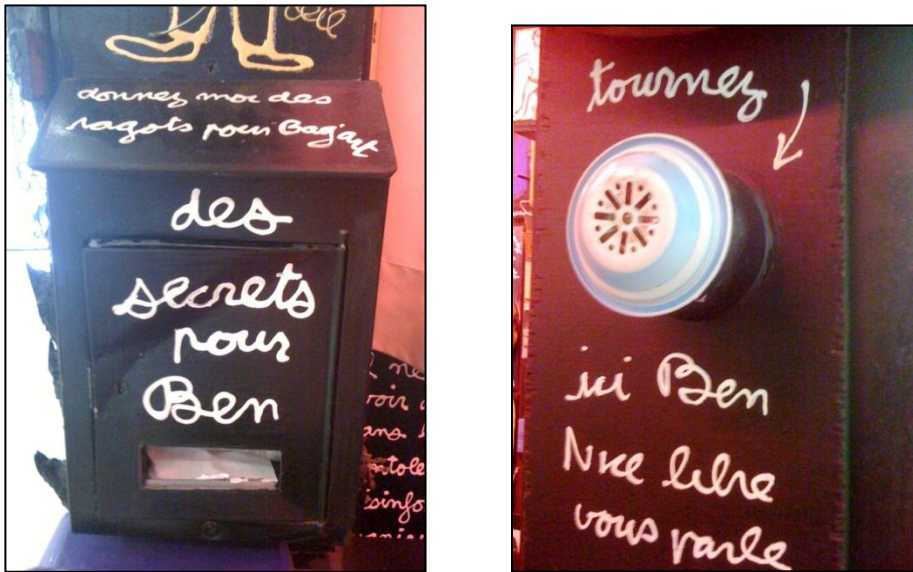 donnez moi des
ragots pour Bag'art
des
secrets
pour
Ben
ne
voir
ans
tournez
ici Ben
Nice libre
vous parle